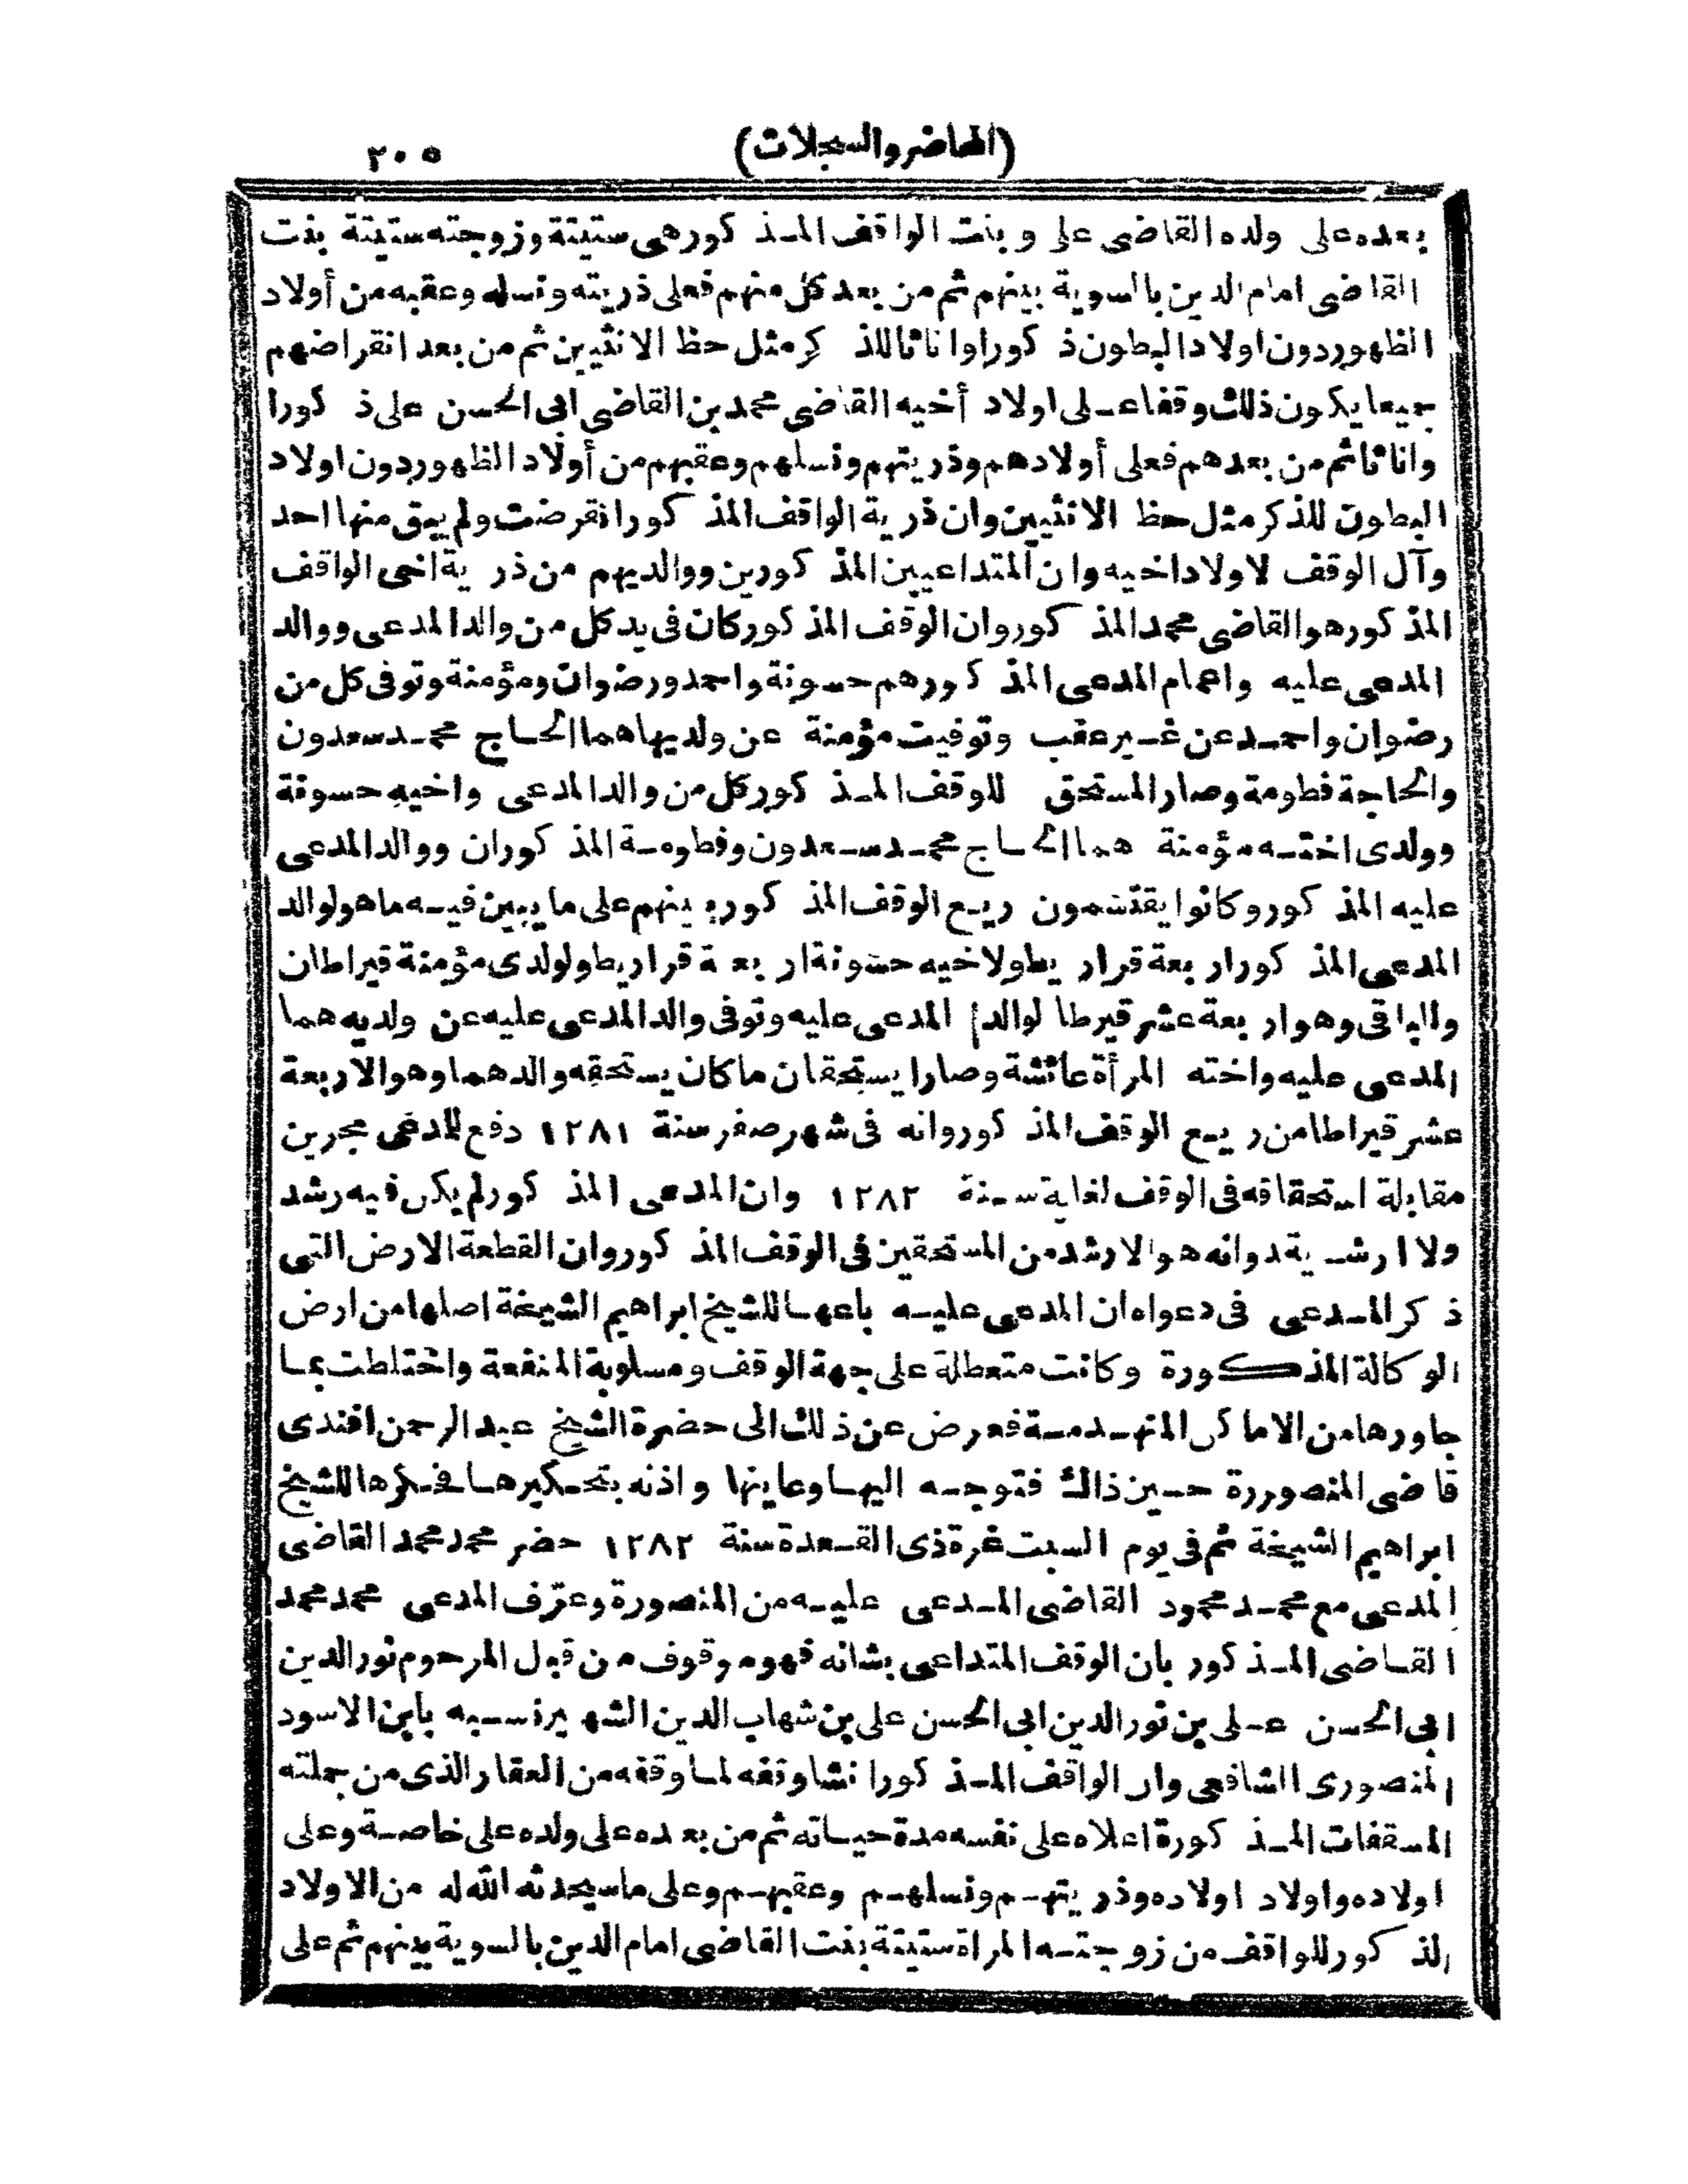 (المحاضر والسجلات) ٢٠٥
بعده على ولده القاضى على وبنت الواقف المذكور هى ستيتة وزوجته ستيتة بنت
القاضى امام الدين بالسوية بينهم ثم من بعد كل منهم فعلى ذريته ونسله وعقبه من أولاد
الظهور دون اولاد البطون ذكورا واناثا للذكر مثل حظ الانثيين ثم من بعد انقراضهم
جميعا يكون ذلك وقفا على اولاد أخيه القاضى محمد بن القاضى ابى الحسن على ذكورا
واناثا ثم من بعدهم فعلى أولادهم وذريتهم ونسلهم وعقبهم من أولاد الظهور دون اولاد
البطون للذكر مثل حظ الانثيين وان ذرية الواقف المذكور انقرضت ولم يبق منها احد
وآل الوقف لاولاد اخيه وان المتداعيين المذكورين ووالديهم من ذرية اخى الواقف
المذكور هو القاضى محمد المذكور وان الوقف المذكور كان فى يد كل من والد المدعى ووالد
المدعى عليه واعمام المدعى المذكور هم حسونة واحمد ورضوان ومؤمنة وتوفى كل من
رضوان واحمد عن غير عقب وتوفيت مؤمنة عن ولديها هما الحاج محمد سعدون
والحاجة فطومة وصار المستحق للوقف المذكور كل من والد المدعى واخيه حسونة
وولدى اخته مؤمنة هما الحاج محمد سعدون وفطومة المذكوران ووالد المدعى
عليه المذكور وكانوا يقتسمون ريع الوقف المذكور بينهم على ما يبين فيه ما هو لوالد
المدعى المذكور اربعة قراريط ولاخيه حسونة اربعة قراريط ولولدى مؤمنة قيراطان
والباقى وهو اربعة عشر قيرطا لوالد المدعى عليه وتوفى والد المدعى عليه عن ولديه هما
المدعى عليه واخته المرأة عائشة وصارا يستحقان ما كان يستحقه والدهما وهو الاربعة
عشر قيراطا من ريع الوقف المذكور وانه فى شهر صفر سنة ١٢٨١ دفع للمدعى مجرين
مقابلة استحقاقه فى الوقف لغاية سنة ١٢٨٢ وان المدعى المذكور لم يكن فيه رشد
ولا ارشدية وانه هو الارشد من المستحقين فى الوقف المذكور وان القطعة الارض التى
ذكر المدعى فى دعواه ان المدعى عليه باعها للشيخ ابراهيم الشيخة اصلها من ارض
الوكالة المذكورة وكانت متعطلة على جهة الوقف ومسلوبة المنفعة واختلطت بما
جاورها من الاماكن المنهدمة فعرض عن ذلك الى حضرة الشيخ عبد الرحمن افندى
قاضى المنصوررة حين ذاك فتوجه اليها وعاينها واذنه بتحكيرها فحكرها للشيخ
ابراهيم الشيخة ثم فى يوم السبت غرة ذى القعدة سنة ١٢٨٢ حضر محمد محمد القاضى
المدعى مع محمد محمود القاضى المدعى عليه من المنصورة وعترف المدعى محمد محمد
القاضى المذكور بان الوقف المتداعى بشانه فهو موقوف من قبل المرحوم نور الدين
ابى الحسن على بن نور الدين ابى الحسن على بن شهاب الدين الشهير نسبه بابن الاسود
المنصورى الشافعى وان الواقف المذكور انشا وقفه لما وقفه من العقار الذى من جملته
المسقفات المذكورة اعلاه على نفسه مدة حياته ثم من بعده على ولده على خاصة وعلى
اولاده واولاد اولاده وذريتهم ونسلهم وعقبهم وعلى ما سيحدثه الله له من الاولاد
الذكور للواقف من زوجته المراة ستيتة بنت القاضى امام الدين بالسوية بينهم ثم على